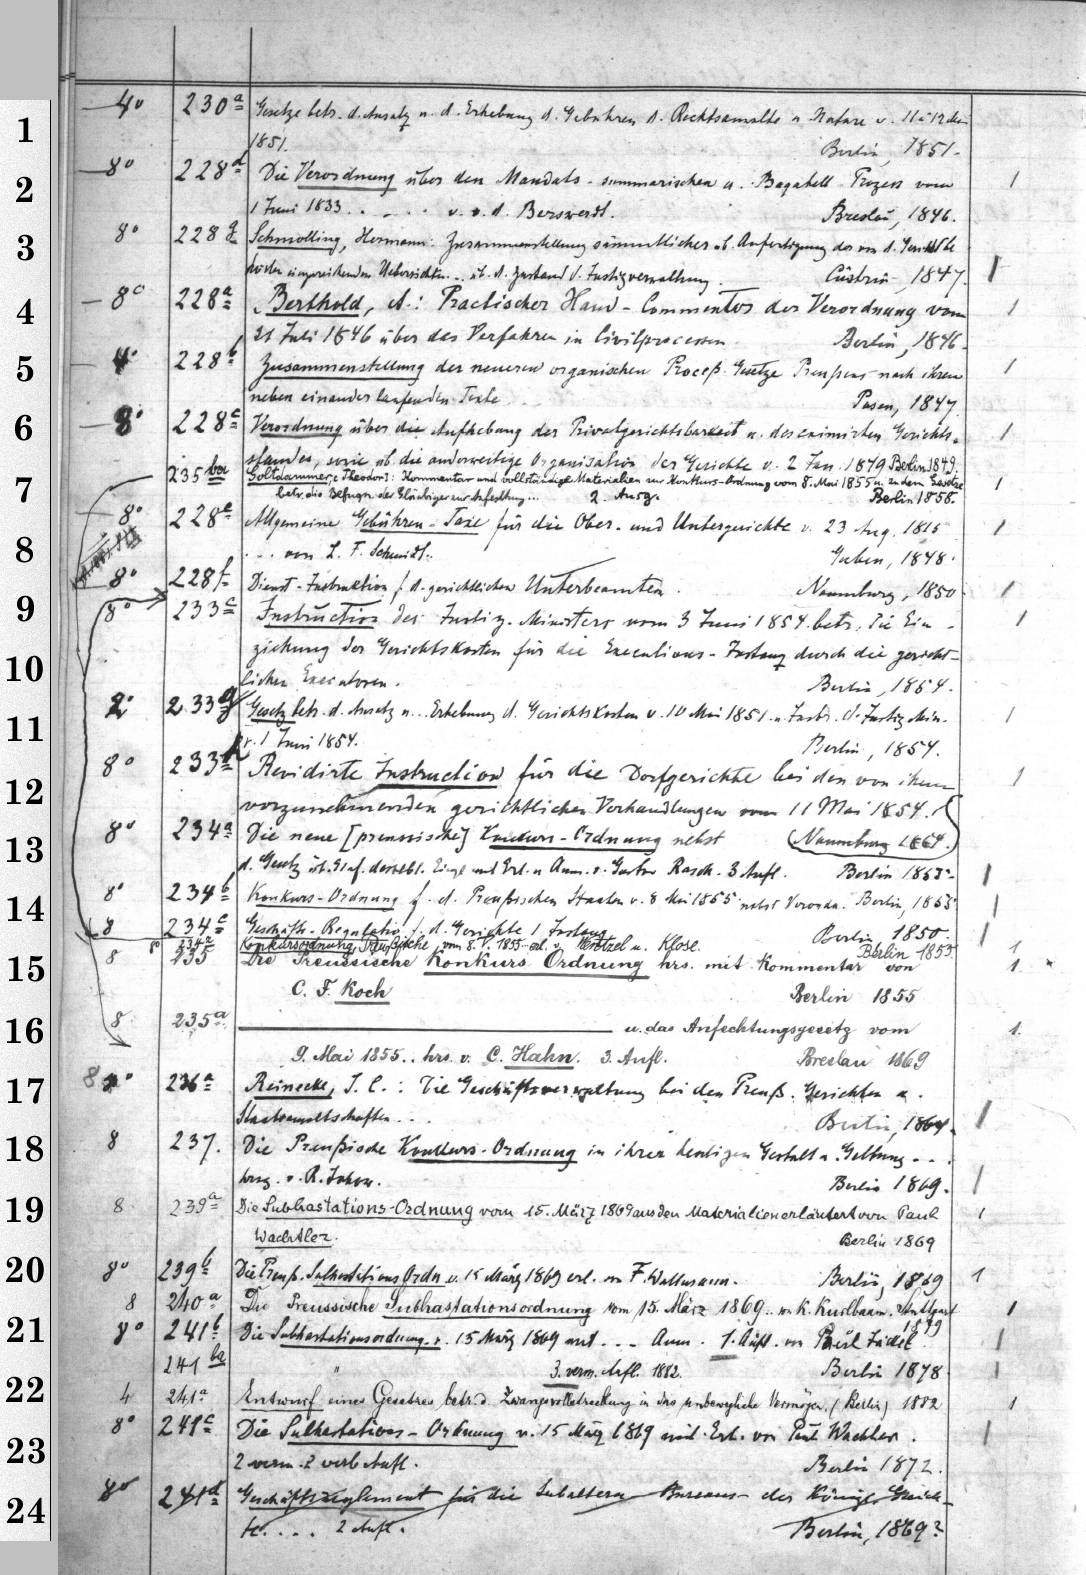 4° 230a Gesetze betr. d. Ansatz u. d. Erhebung d. Gebühren d. Rechtsanwälte u. Notare v.
1 1851. Berlin, 1851.
8° 228d Die Verordnung über den Mandats- summarischen u. Bagatell Prozess vom
2 1 Juni 1833 . . . . v. Breslau, 1846.
8° 228g Schmolling, Hermann: Zusammenstellung sämmtlicher
3 Uebersichten . . üb. d. Zustand d. Justizverwaltung. Cüstrin, 1847.
8° 228a Berthold, A.: Practischer Hand-Commentar der Verordnung vom
4 21 Juli 1846 über das Verfahren in Civilprocessen Berlin, 1846.
4° 228b Zusammenstellung der neueren organischen Proceß Gesetze Preußens nach ihrem
5 neben einander laufenden Texte Posen, 1847.
8° 228c Verordnung über die Aufhebung der Privatgerichtsbarkeit u. des eximirten Gerichts-
6 standes, sowie üb. die anderweitige Organisation der Gerichte v. 2 Jan. 1849 Berlin 1849.
235ba Goltdammer, Theodor: Kommentar und vollständige Materialien zur Konkurs-Ordnung vom 8. Mai 1855 u. zu dem Gesetze
7 betr. die Befugn. der Gläubiger zur Anfechtung... 2. Ausg. Berlin 1858.
8° 228e Allgemeine Gebühren-Taxe für die Ober- und Untergerichte v. 23 Aug. 1815
8 . . . von L. F. Schmidt. Guben, 1848.
8° 228f Dienst-Instruktion f. d. gerichtlichen Unterbeamten. Naumburg, 1850
9 8° 233c Instruction des Justiz-Ministers vom 3 Juni 1854 betr. die Ein-
ziehung der Gerichtskosten für die Executions-Instanz durch die gericht-
10 lichen Executoren. Berlin, 1854.
2° 233g Gesetz betr. d. Ansatz u... Erhebung d. Gerichtskosten v. 10 Mai 1851 u. Instr. d. Justiz Min.
11 v. 1 Juni 1854. Berlin, 1854.
8° 233h Revidirte Instruction für die Dorfgerichte bei den von ihnen
12 vorzunehmenden gerichtlichen Verhandlungen vom 11 Mai 1854.
8° 234a Die neue [preussische] Konkurs-Ordnung nebst (Naumburg 1864.)
13 d. Gesetz Gustav Rasch. 3 Aufl. Berlin 1855
8° 234b Konkurs-Ordnung f. d. Preußischen Staaten v. 8 Mai 1855 nebst Berlin, 1855
14
8 234c Geschäfts-Regulativ f. d. Gerichte 1 Instanz Berlin 1850.
8° Konkursordnung, Preußische, vom 8. V. 1855 erl. v. Wentzel u. Klose. Berlin 1855.
8 235 Die Preussische Konkurs Ordnung hrs. mit Kommentar von
15 C. F. Koch Berlin 1855
16 8 235a ——— u. das Anfechtungsgesetz vom
9. Mai 1855.. hrs. v. C. Hahn. 3. Aufl. Breslau 1869
17 8° 236a Reinecke, J. C.: Die Geschäftsverwaltung bei den Preuß. Gerichten u.
Staatsanwaltschaften . . . Berlin, 1864.
18 8 237. Die Preußische Konkurs-Ordnung in ihrer heutigen Gestalt u. Geltung . . .
hrsg. v. R. Berlin 1869.
19 8 239a Die Subhastations-Ordnung vom 15. März 1869 aus den Materialien erläutert von Paul
Wachtler. Berlin 1869
20 8° 239b Die Preuß. Subhastations Ordn. v. 15 März 1869 erl. von F. Berlin, 1869
8 240a Die Preussische Subhastationsordnung vom 15. März 1869.. von K. Kurlbaum. Stuttgart
21 8° 241b Die Subhastationsordnung v. 15 März 1869 mit . . . Anm. 1. Aufl. von Paul Jäckel.
241ba " 3. verm. Aufl. 1882. Berlin 1878
22 4 241a Entwurf eines Gesetzes betr. d. Zwangsvollstreckung in das unbewegliche Vermögen. (Berlin) 1882
8° 241c Die Subhastations-Ordnung v. 15 März 1869 mit Erl. von Paul Wachtler.
23 2 verm. u. verb. Aufl. Berlin 1872.
8° 241d Geschäftsreglement für die Subaltern Bureaus der Königl. Gerich-
24 te. . . . 2 Aufl. Berlin, 1869?